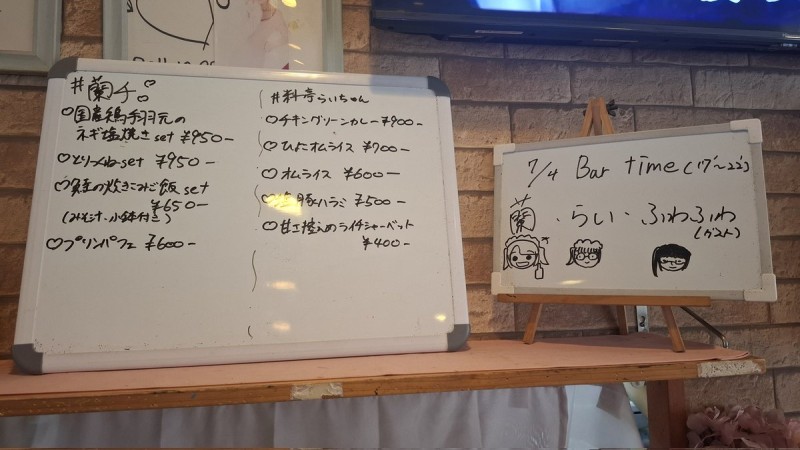 #蘭チ♡
♡国産鶏手羽元の
ネギ塩焼き set ¥950-
♡とりつくね set ¥950-
炊きこみご飯 set
¥650-
(みそ汁・小鉢付き)
♡プリンパフェ ¥600-
#料亭らいちゃん
○チキングリーンカレー ¥900-
○ひよこオムライス ¥700-
○オムライス ¥600-
豚ハラミ ¥500-
○甘さ控えめライチシャーベット
¥400-
7/4 Bar time (17~22)
蘭・らい・ふわふわ
(ゲスト)